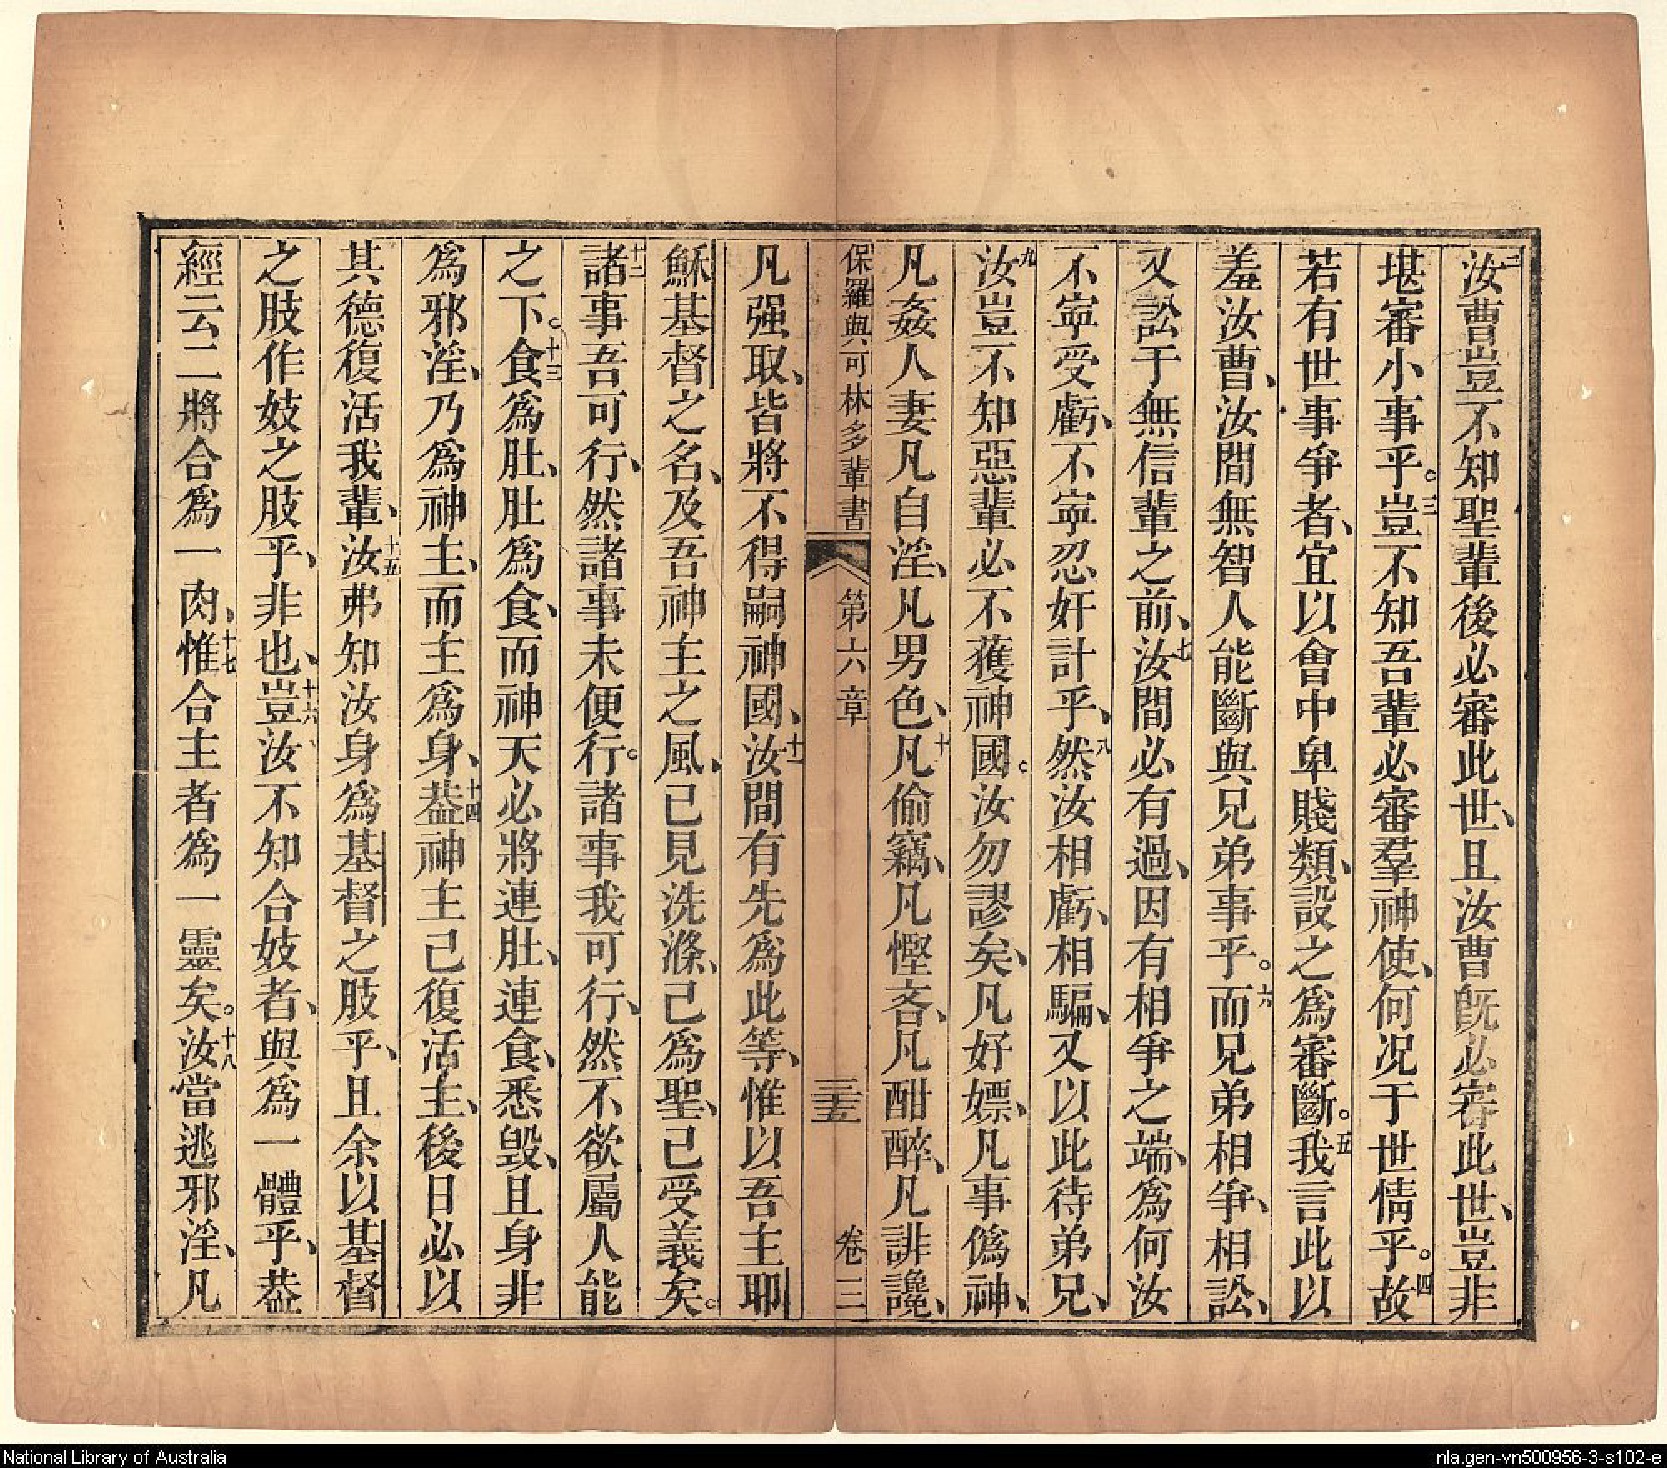 二汝曹豈不知聖輩後必審此世、且汝曹旣必審此世、豈非
堪審小事乎。三豈不知吾輩必審羣神使、何况于世情乎。四故
若有世事爭者、宜以會中卑賤類、設之爲審斷。五我言此以
羞汝曹、汝間無智人能斷與兄弟事乎。六而兄弟相爭、相訟、
又訟于無信輩之前、七汝間必有過、因有相爭之端、爲何汝
不寧受虧、不寧忍奸計乎、八然汝相虧、相騙、又以此待弟兄、
九汝豈不知惡輩必不獲神國。汝勿謬矣、凡好嫖、凡事僞神、
凡姦人妻凡自淫、凡男色、十凡偷竊、凡慳吝、凡酣醉、凡誹讒、
保羅與可林多輩書 第六章 三五 卷三
凡强取、皆將不得嗣神國、十一汝間有先爲此等、惟以吾主耶
穌基督之名、及吾神主之風、已見洗滌、已爲聖、已受義矣。
十二諸事吾可行、然諸事未便行。諸事我可行、然不欲屬人能
之下。十三食爲肚、肚爲食、而神天必將連肚、連食、悉毀、且身非
爲邪淫、乃爲神主、而主爲身、十四葢神主已復活主、後日必以
其德復活我輩、十五汝弗知汝身爲基督之肢乎、且余以基督
之肢作妓之肢乎、非也、十六豈汝不知合妓者、與爲一體乎、葢
經云二將合爲一肉、十七惟合主者爲一靈矣。十八汝當逃邪淫、凡
National Library of Australia
nla.gen-vn500956-3-s102-e